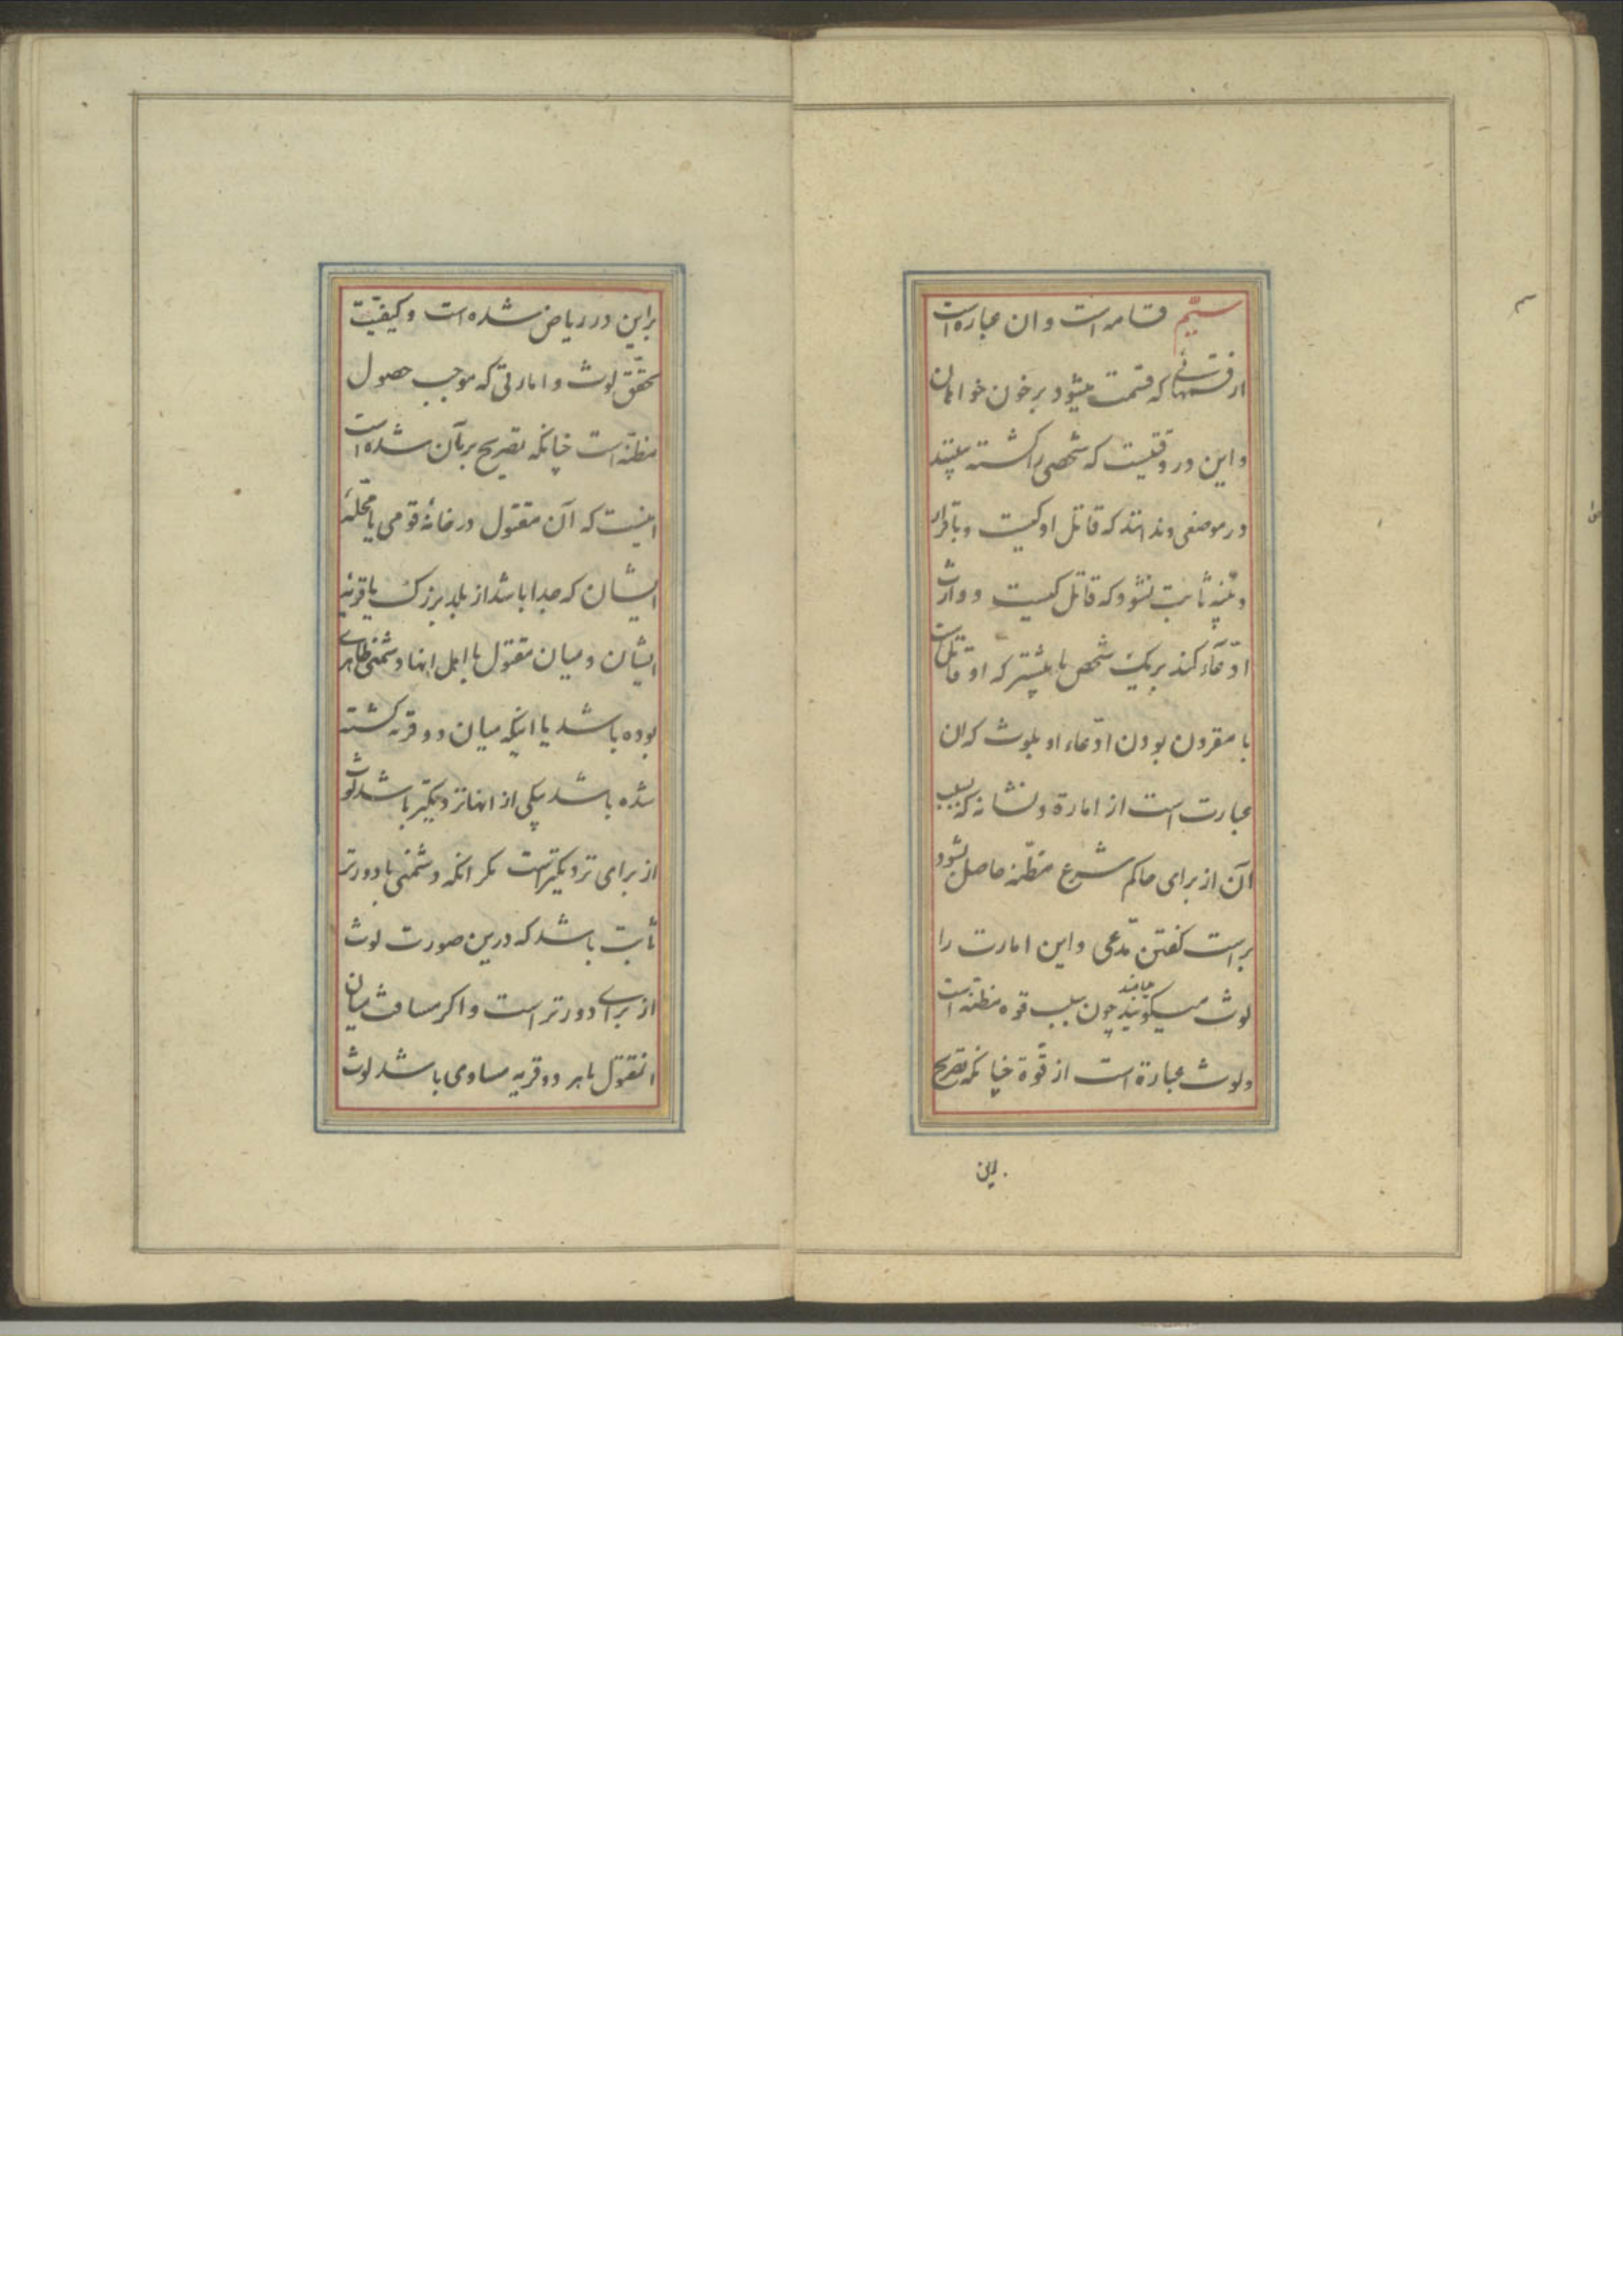 سیّم قسامه است و ان عبارة است
از قسمهائی که قسمت میشود بر خون خواهان
و این در وقتیست که شخصی را کشته ببینند
در موضعی و ندانند که قاتل او کیست و باقرار
و بیّنه ثابت نشود که قاتل کیست و وارث
ادّعآء کند بر یک شخص یا بیشتر که او قاتل است
با مقرون بودن ادّعاء او بلوث که ان
عبارت است از اماره و نشانه که بسبب
آن از برای حاکم شرع مظنّه حاصل بشود
براست کفتن مدّعی و این امارت را
لوث میکویند چون سبب قوه مظنّه است
و لوث عبارة است از قوّة چنانکه تصریح
براین
براین در ریاض شده است و کیفیّت
تحقّق لوث و اماراتی که موجب حصول
مظنّه است چنانکه تصریح برآن شده است
اینست که آن مقتول در خانهٔ قومی یا محلّهٔ
ایشان که جدا باشد از بلد بزرک یا قریهٔ
ایشان و میان مقتول با اهل انها دشمنی ظاهری
بوده باشد یا اینکه میان دو قریه کشته
شده باشد یکی از انها نزدیکتر باشد لوث
از برای نزدیکتر است مکر انکه دشمنی با دورتر
ثابت باشد که درین صورت لوث
از برای دورتر است و اکر مسافت میان
انمقتول با هر دو قریه مساوی باشد لوث